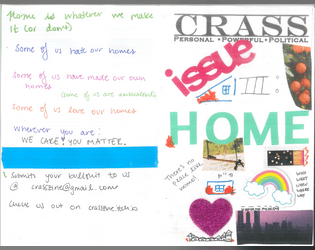 Home is whatever we make
it (or don't)
Some of us hate our homes
Some of us have made our own
homes
Some of us are ambivalent
Some of us love our homes
Wherever you are:
WE CARE! YOU MATTER.
Submit your bullshit to us
@ crasszine@gmail.com
Check us out on
CRASS
PERSONAL • POWERFUL • POLITICAL
issue
HOME
There's no
place like
home!
WHO
WHAT
WHEN
WHERE
WHY